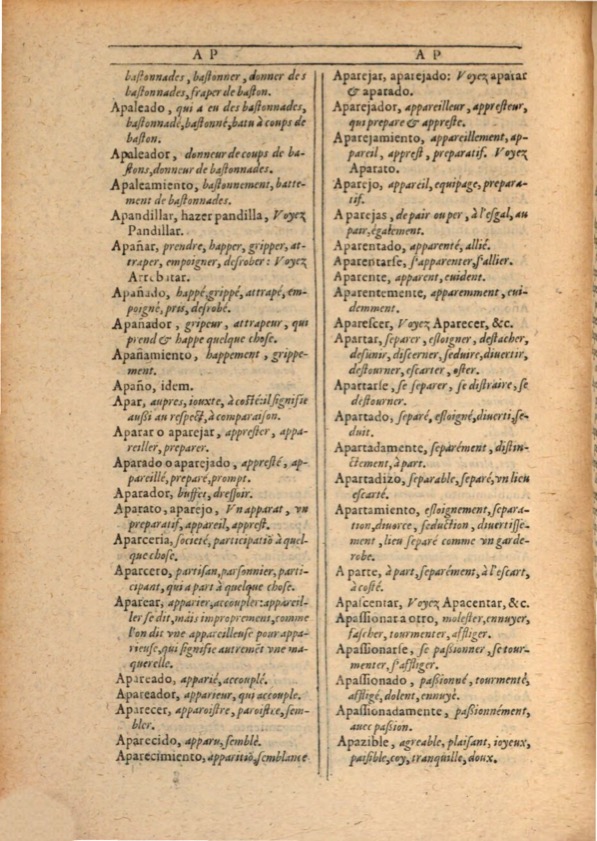 A P
baſtonnades, baſtonner, donner des
baſtonnades, fraper de baſton.
Apaleado, qui a eu des baſtonnades,
baſtonnadé, baſtonné, batu à coups de
baſton.
Apaleador, donneur de coups de ba-
ſtons, donneur de baſtonnades.
Apaleamiento, baſtonnement, batte-
ment de baſtonnades.
Apandillar, hazer pandilla, Voyez
Pandillar.
Apañar, prendre, happer, gripper, at-
traper, empoigner, deſrober: Voyez
Arrebatar.
Apañado, happé, grippé, attrapé, em-
poigné, pris, deſrobé.
Apañador, gripeur, attrapeur, qui
prend & happe quelque choſe.
Apañamiento, happement, grippe-
ment.
Apaño, idem.
Apar, aupres, iouxte, à coſté: il ſignifie
außi au reſpect, à comparaiſon.
Aparar o aparejar, appreſter, appa-
reiller, preparer.
Aparado o aparejado, appreſté, ap-
pareillé, preparé, prompt.
Aparador, buffet, dreſſoir.
Aparato, aparejo, Vn apparat, vn
preparatif, appareil, appreſt.
Aparceria, societé, participatiō à quel-
que choſe.
Aparcero, partiſan, parſonnier, parti-
cipant, qui a part à quelque choſe.
Aparear, apparier, accoupler: appareil-
ler ſe dit, mais improprement, comme
l'on dit vne appareilleuſe pour appa-
rieuſe, qui ſignifie autremēt vne ma-
querelle.
Apareado, apparié, accouplé.
Apareador, apparieur, qui accouple.
Aparecer, apparoiſtre, paroiſtre, ſem-
bler.
Aparecido, apparu, ſemblé.
Aparecimiento, apparitiō, ſemblance
A P
Aparejar, aparejado: Voyez aparar
& aparado.
Aparejador, appareilleur, appreſteur,
qui prepare & appreſte.
Aparejamiento, appareillement, ap-
pareil, appreſt, preparatif. Voyez
Aparato.
Aparejo, appareil, equipage, prepara-
tif.
A parejas, de pair ou per, à l'eſgal, au
pair, également.
Aparentado, apparenté, allié.
Aparentarſe, s'apparenter, s'allier.
Aparente, apparent, euident.
Aparentemente, apparemment, eui-
demment.
Apareſcer, Voyez Aparecer, &c.
Apartar, ſeparer, eſloigner, deſtacher,
deſunir, diſcerner, ſeduire, diuertir,
deſtourner, eſcarter, oſter.
Apartarſe, ſe ſeparer, ſe diſtraire, ſe
deſtourner.
Apartado, ſeparé, eſloigné, diuerti, ſe-
duit.
Apartadamente, ſeparément, diſtin-
ctement, à part.
Apartadizo, ſeparable, ſeparé, vn lieu
eſcarté.
Apartamiento, eſloignement, ſepara-
tion, diuorce, ſeduction, diuertiſſe-
ment, lieu ſeparé comme vn garde-
robe.
A parte, à part, ſeparément, à l'eſcart,
à coſté.
Apaſcentar, Voyez Apacentar, &c.
Apaſſionar a otro, moleſter, ennuyer,
faſcher, tourmenter, affliger.
Apaſſionarſe, ſe paßionner, ſe tour-
menter, s'affliger.
Apaſſionado, paßionné, tourmenté,
affligé, dolent, ennuyé.
Apaſſionadamente, paßionnément,
auec paßion.
Apazible, agreable, plaiſant, ioyeux,
paiſible, coy, tranquille, doux.